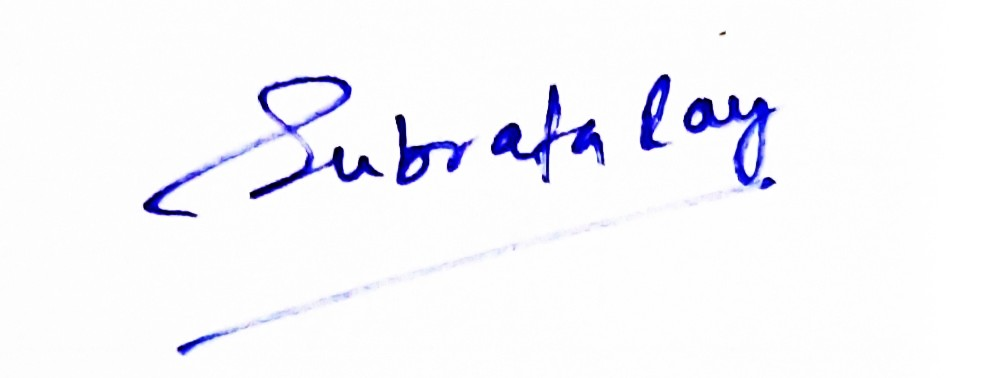 Subrata Ray